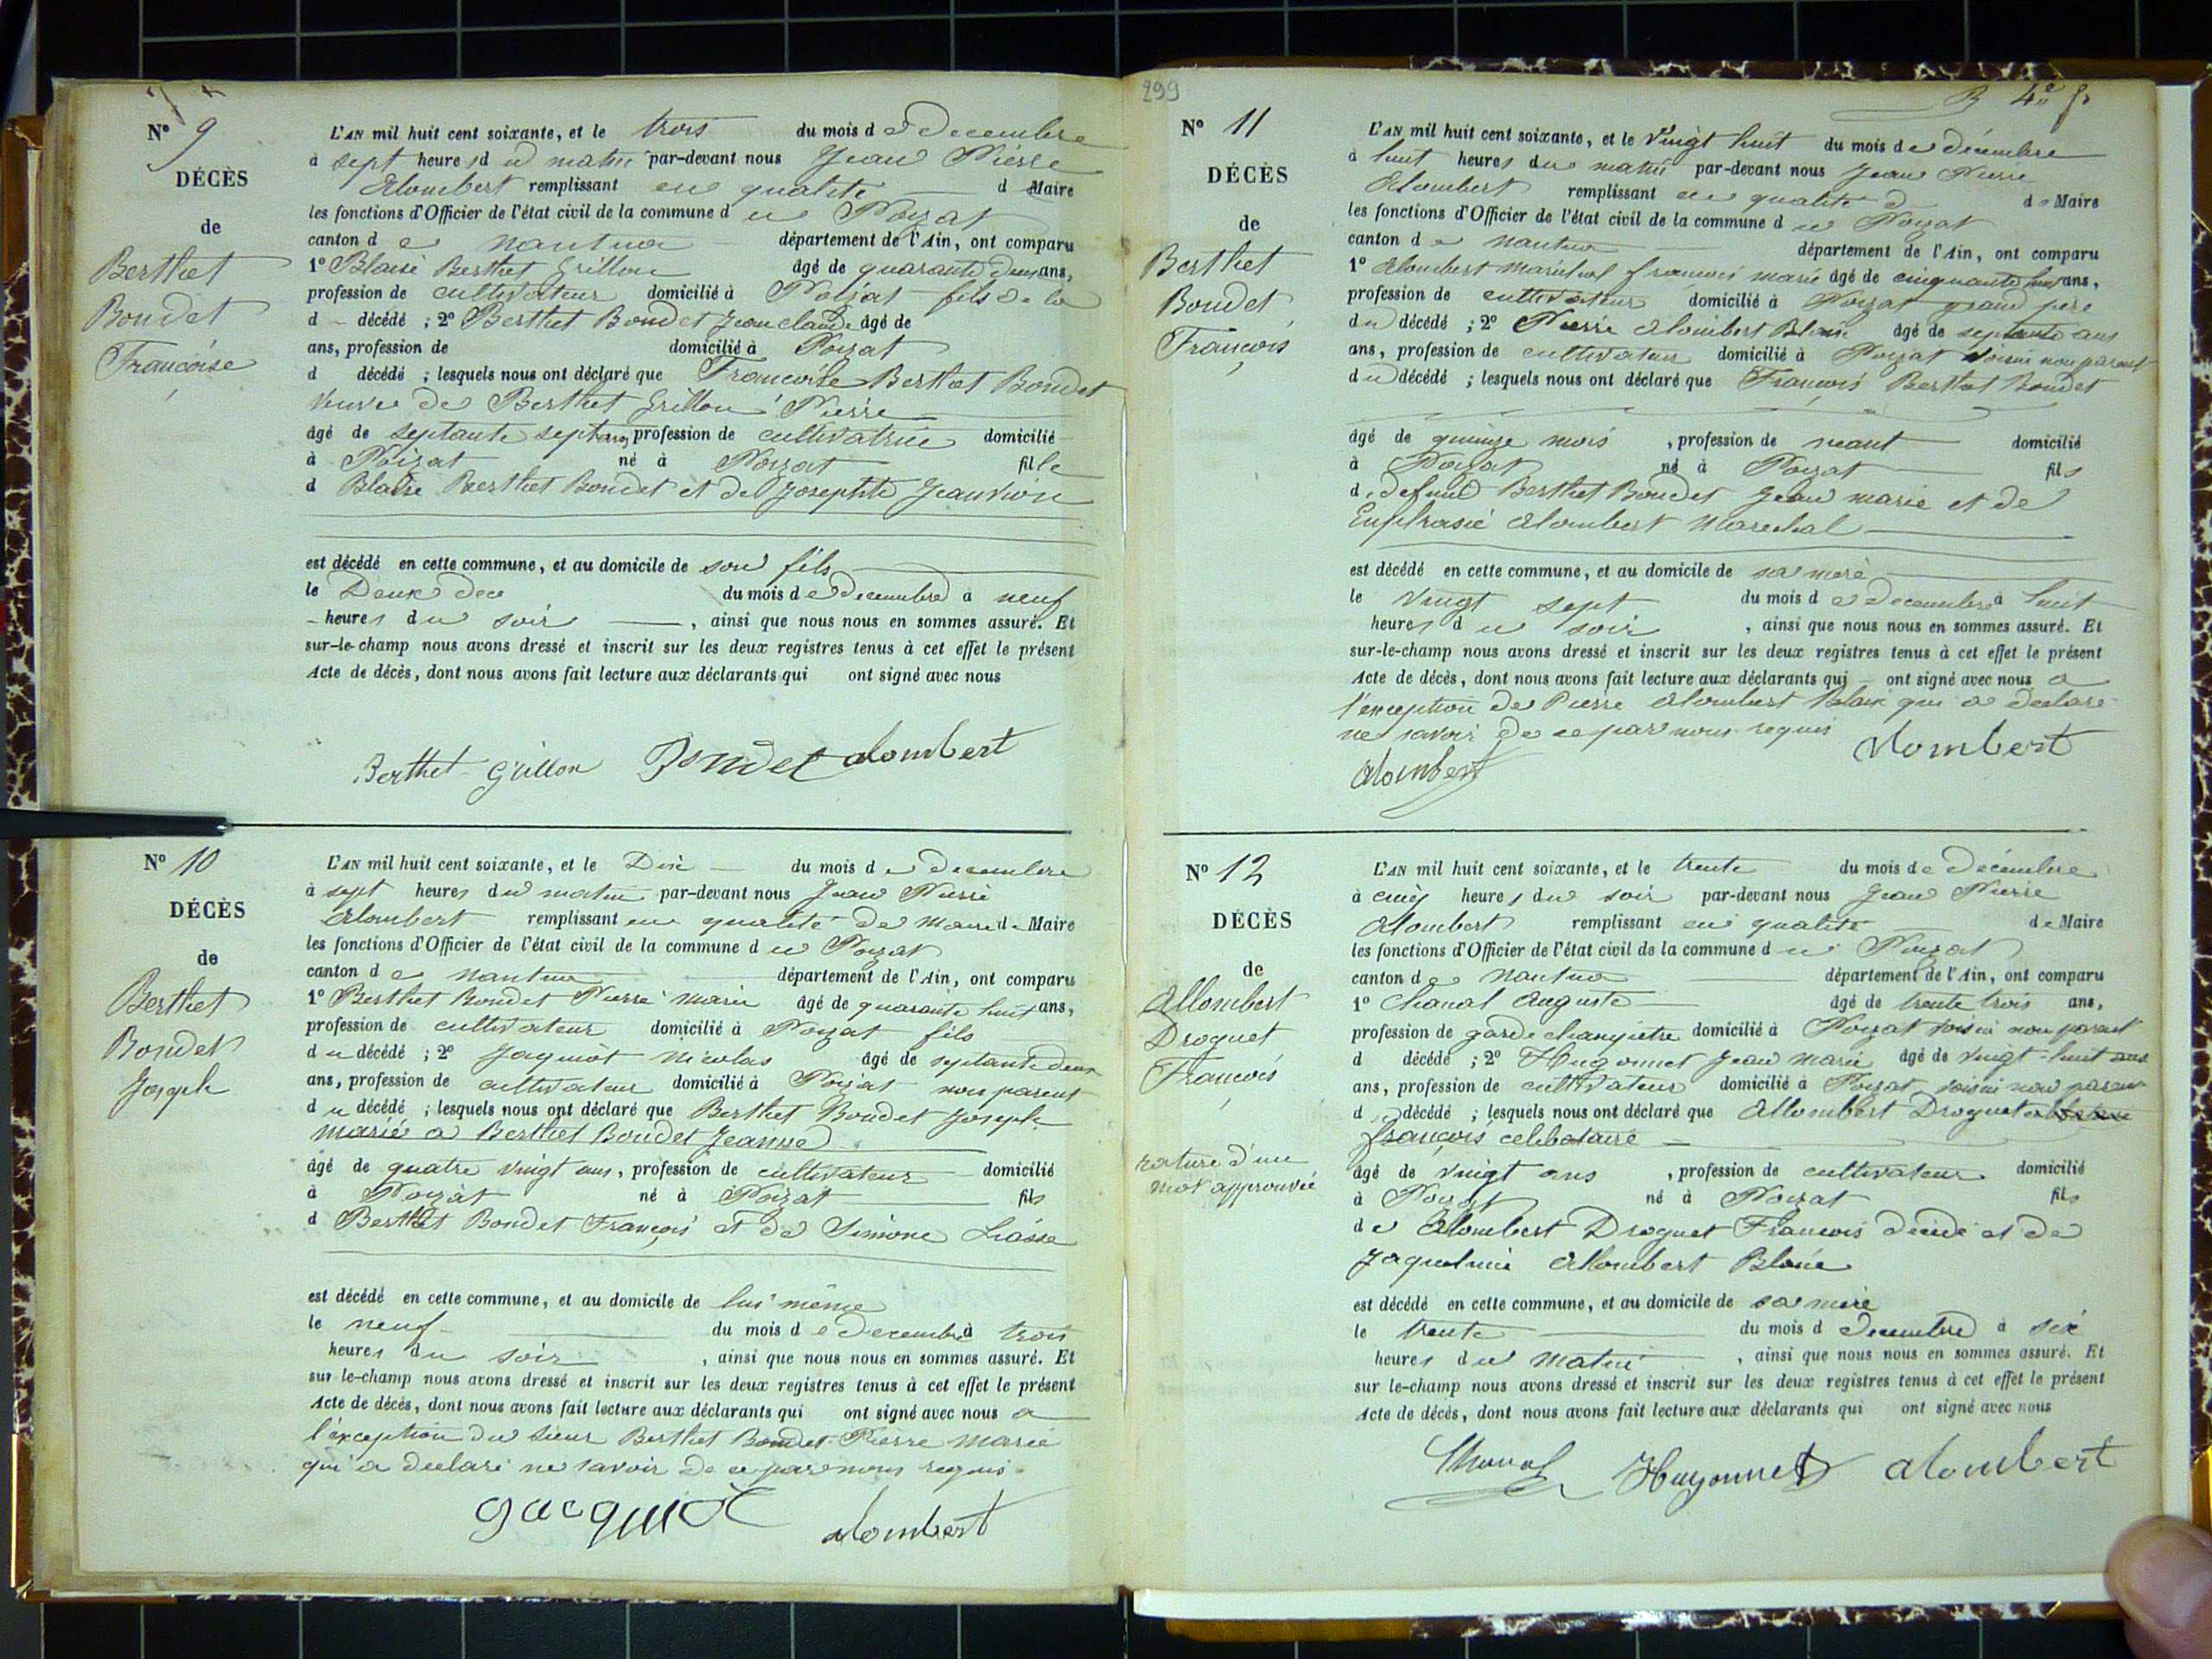 N° 9
DÉCÈS
de
Berthet
Boudet
Francoise
L'AN mil huit cent soixante, et le trois du mois de decembre
à sept heures du matin par-devant nous Jean Pierre
Alombert remplissant en qualité de Maire
les fonctions d'Officier de l'état civil de la commune du Poizat
canton de nantua département de l'Ain, ont comparu
1° Blaise Berthet Grillon âgé de quarante deux ans,
profession de cultivateur domicilié à Poizat fils de la
d décédé ; 2° Berthet Boudet Jean claude âgé de
ans, profession de domicilié à Poizat
d décédé ; lesquels nous ont déclaré que Francoise Berthet Boudet
Veuve de Berthet Grillon Pierre
âgé de septante sept ans, profession de cultivatrice domicilié
à Poizat né à Poizat fille
d Blaise Berthet Boudet et de Josephte Jeanvion
est décédé en cette commune, et au domicile de son fils
le Deux dece du mois de decembre à neuf
heures du soir , ainsi que nous nous en sommes assuré. Et
sur-le-champ nous avons dressé et inscrit sur les deux registres tenus à cet effet le présent
Acte de décès, dont nous avons fait lecture aux déclarants qui ont signé avec nous
Berthet Grillon Boudet alombert
N° 10
DÉCÈS
de
Berthet
Boudet
Joseph
L'AN mil huit cent soixante, et le Dix du mois de decembre
à sept heures du matin par-devant nous Jean Pierre
Alombert remplissant en qualité de maire de Maire
les fonctions d'Officier de l'état civil de la commune du Poizat
canton de nantua département de l'Ain, ont comparu
1° Berthet Boudet Pierre marie âgé de quarante huit ans,
profession de cultivateur domicilié à Poizat fils
du décédé ; 2° Jaquiot nicolas âgé de septante deux
ans, profession de cultivateur domicilié à Poizat non parent
du décédé ; lesquels nous ont déclaré que Berthet Boudet Joseph
marié a Berthet Boudet Jeanne
âgé de quatre vingt ans, profession de cultivateur domicilié
à Poizat né à Poizat fils
d Berthet Boudet François et de Simone Liasse
est décédé en cette commune, et au domicile de lui même
le neuf du mois de Decembre à trois
heures du soir , ainsi que nous nous en sommes assuré. Et
sur-le-champ nous avons dressé et inscrit sur les deux registres tenus à cet effet le présent
Acte de décès, dont nous avons fait lecture aux déclarants qui ont signé avec nous a
l'exception du sieur Berthet Boudet Pierre marie
qui a declaré ne savoir de ce par nous requis
Jacquiot alombert
299
B 4e f
N° 11
DÉCÈS
de
Berthet
Boudet
François
L'AN mil huit cent soixante, et le Vingt huit du mois de décembre
à huit heures du matin par-devant nous Jean Pierre
Alombert remplissant en qualité d de Maire
les fonctions d'Officier de l'état civil de la commune du Poizat
canton de nantua département de l'Ain, ont comparu
1° Alombert maréchal francois marie âgé de cinquante huit ans,
profession de cultivateur domicilié à Poizat grand père
du décédé ; 2° Pierre alombert Blaix âgé de septante ans
ans, profession de cultivateur domicilié à Poizat voisin non parent
du décédé ; lesquels nous ont déclaré que François Berthet Boudet
âgé de quinze mois , profession de neant domicilié
à Poizat né à Poizat fils
d. defund Berthet Boudet Jean marie et de
Euphrasie alombert Marechal
est décédé en cette commune, et au domicile de sa mère
le Vingt sept du mois de decembre à huit
heures du soir , ainsi que nous nous en sommes assuré. Et
sur-le-champ nous avons dressé et inscrit sur les deux registres tenus à cet effet le présent
Acte de décès, dont nous avons fait lecture aux déclarants qui ont signé avec nous a
l'exception de Pierre alombert Blaix qui a declaré
ne savoir de ce par nous requis alombert
alombert
N° 12
DÉCÈS
de
Allombert
Droguet
Francois
rature d'un
mot approuvée
L'AN mil huit cent soixante, et le trente du mois de décembre
à cinq heures du soir par-devant nous Jean Pierre
Alombert remplissant en qualité de Maire
les fonctions d'Officier de l'état civil de la commune du Poizat
canton de nantua département de l'Ain, ont comparu
1° Chanal Auguste âgé de trente trois ans,
profession de garde champetre domicilié à Poizat voisin non parent
d décédé ; 2° Hugonnet Jean marie âgé de vingt-huit ans
ans, profession de cultivateur domicilié à Poizat voisin non parent
d décédé ; lesquels nous ont déclaré que Allombert Droguet
françois celibataire
âgé de vingt ans , profession de cultivateur domicilié
à Poizat né à Poizat fils
de Alombert Droguet Francois décédé et de
Jaquelmie Allombert
est décédé en cette commune, et au domicile de sa mère
le trente du mois d Decembre à six
heures du matin , ainsi que nous nous en sommes assuré. Et
sur le-champ nous avons dressé et inscrit sur les deux registres tenus à cet effet le présent
Acte de décès, dont nous avons fait lecture aux déclarants qui ont signé avec nous
Chanal Hugonnet alombert